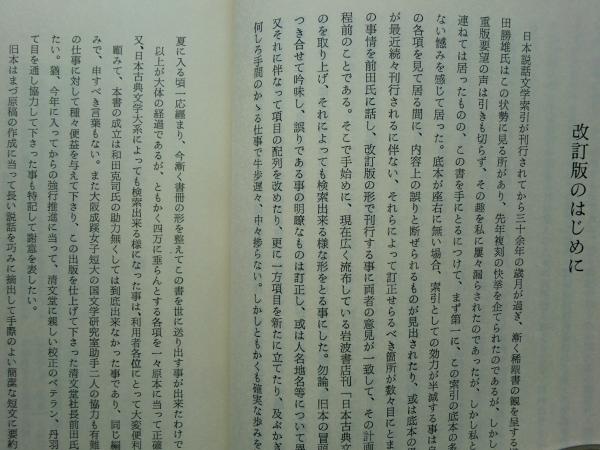 改訂版のはじめに
日本説話文学索引が刊行されてから三十余年の歳月が過ぎ、漸く稀覯書の観を呈する
田勝雄氏はこの状勢に見る所があり、先年複刻の快挙を企てられたのであるが、しかし
重版要望の声は引きも切らず、その趣を私に屢々漏らされたのであったが、しかし私と
連ねては居ったものの、この書を手にとるにつけて、まず第一に、この索引の底本の
ない憾みを感じて居った。底本が座右に無い場合、索引としての効力が半減する事は
の各項を見て居る間に、内容上の誤りと断ぜられるものが見出されたり、或は底本の
が最近続々刊行されるに伴ない、それらによって訂正せらるべき箇所が数々目にとま
の事情を前田氏に話し、改訂版の形で刊行する事に両者の意見が一致して、その計画
程前のことである。そこで手始めに、現在広く流布している岩波書店刊「日本古典文
のを取り上げ、それによっても検索出来る様な形をとる事にした。勿論、旧本の冒頭
つき合せて吟味し、誤りである事の明瞭なものは訂正し、或は人名地名等について
又それに伴なって項目の配列を改めたり、更に一方項目を新たに立てたり、及ぶかぎ
何しろ手間のかゝる仕事で牛歩遅々、中々捗らない。しかしともかくも確実な歩みを
夏に入る頃一応纏まり、今漸く書冊の形を整えてこの書を世に送り出す事が出来たわけで
以上が大体の経過であるが、ともかく四万に垂らんとする各項を一々原本に当って正確
又、日本古典文学大系によっても検索出来る様になった事は、利用者各位にとって大変便利
顧みて、本書の成立は和田克司氏の助力無くしては到底出来なかった事であり、同じ編
みで、申すべき言葉もない。また大阪成蹊女子短大の国文学研究室助手二人の協力も有難
の仕事に対して種々便益を与えて下さり、この出版を仕上げて下さった清文堂社長前田氏
たい。猶、今年に入ってからの強行推進に当って、清文堂に親しい校正のベテラン、丹羽
て目を通し協力して下さった事も特記して謝意を表したい。
旧本はまづ原稿の作成に当って長い説話を巧みに摘出して手際のよい簡潔な短文に要約